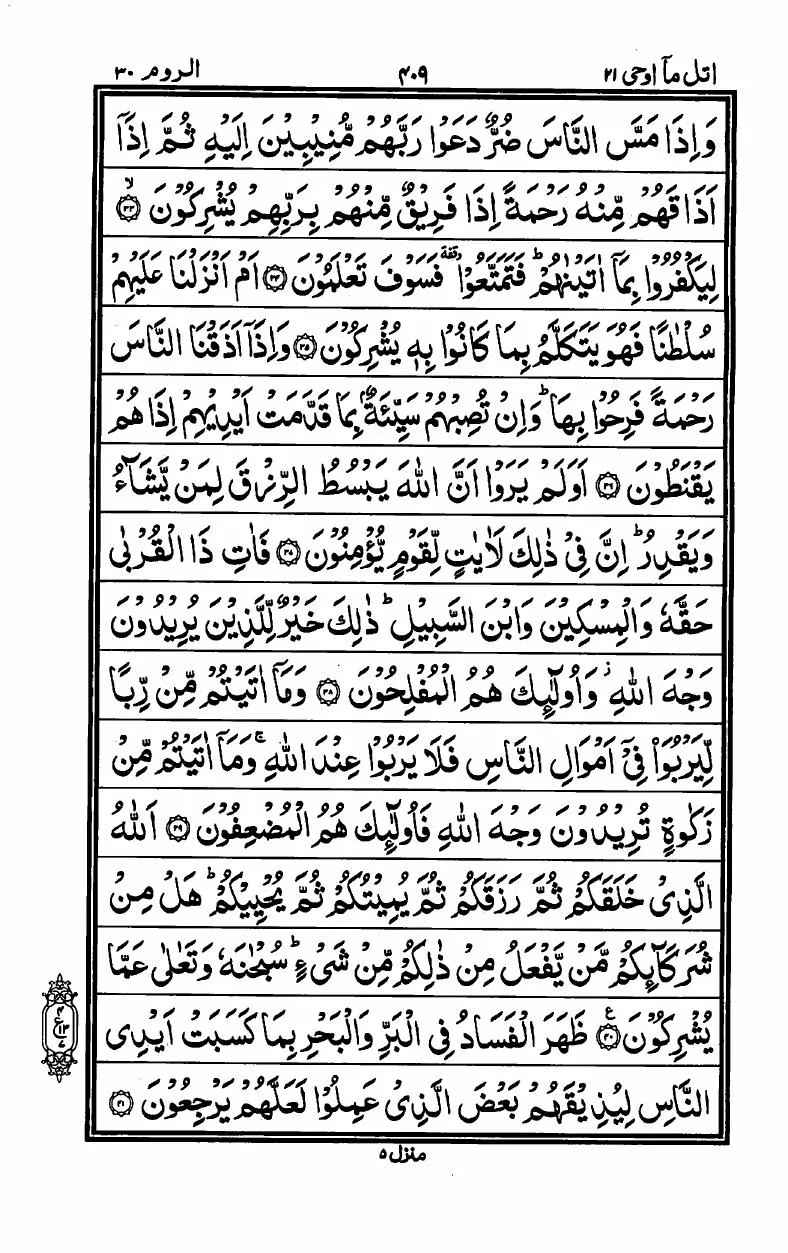 اتل مآ اوحی ۲۱ ۴۰۹ الروم ۳۰
وَاِذَا مَسَّ النَّاسَ ضُرٌّ دَعَوْا رَبَّهُمْ مُّنِيْبِيْنَ اِلَيْهِ ثُمَّ اِذَآ
اَذَاقَهُمْ مِّنْهُ رَحْمَةً اِذَا فَرِيْقٌ مِّنْهُمْ بِرَبِّهِمْ يُشْرِكُوْنَ ۙ‏﴿۳۳﴾
لِيَكْفُرُوْا بِمَآ اٰتَيْنٰهُمْ ؕ فَتَمَتَّعُوْا ۥ فَسَوْفَ تَعْلَمُوْنَ ﴿۳۴﴾ اَمْ اَنْزَلْنَا عَلَيْهِمْ
سُلْطٰنًا فَهُوَ يَتَكَلَّمُ بِمَا كَانُوْا بِهٖ يُشْرِكُوْنَ ﴿۳۵﴾ وَاِذَآ اَذَقْنَا النَّاسَ
رَحْمَةً فَرِحُوْا بِهَا ؕ وَاِنْ تُصِبْهُمْ سَيِّئَةٌۢ بِمَا قَدَّمَتْ اَيْدِيْهِمْ اِذَا هُمْ
يَقْنَطُوْنَ ﴿۳۶﴾ اَوَلَمْ يَرَوْا اَنَّ اللّٰهَ يَبْسُطُ الرِّزْقَ لِمَنْ يَّشَآءُ
وَيَقْدِرُ ؕ اِنَّ فِيْ ذٰلِكَ لَاٰيٰتٍ لِّقَوْمٍ يُّؤْمِنُوْنَ ﴿۳۷﴾ فَاٰتِ ذَا الْقُرْبٰى
حَقَّهٗ وَالْمِسْكِيْنَ وَابْنَ السَّبِيْلِ ؕ ذٰلِكَ خَيْرٌ لِّلَّذِيْنَ يُرِيْدُوْنَ
وَجْهَ اللّٰهِ ؗ وَاُولٰٓئِكَ هُمُ الْمُفْلِحُوْنَ ﴿۳۸﴾ وَمَآ اٰتَيْتُمْ مِّنْ رِّبًا
لِّيَرْبُوَا۟ فِيْٓ اَمْوَالِ النَّاسِ فَلَا يَرْبُوْا عِنْدَ اللّٰهِ ۚ وَمَآ اٰتَيْتُمْ مِّنْ
زَكٰوةٍ تُرِيْدُوْنَ وَجْهَ اللّٰهِ فَاُولٰٓئِكَ هُمُ الْمُضْعِفُوْنَ ﴿۳۹﴾ اَللّٰهُ
الَّذِيْ خَلَقَكُمْ ثُمَّ رَزَقَكُمْ ثُمَّ يُمِيْتُكُمْ ثُمَّ يُحْيِيْكُمْ ؕ هَلْ مِنْ
شُرَكَآئِكُمْ مَّنْ يَّفْعَلُ مِنْ ذٰلِكُمْ مِّنْ شَيْءٍ ؕ سُبْحٰنَهٗ وَتَعٰلٰى عَمَّا
يُشْرِكُوْنَ ﴿۴۰﴾ ع ظَهَرَ الْفَسَادُ فِي الْبَرِّ وَالْبَحْرِ بِمَا كَسَبَتْ اَيْدِى
النَّاسِ لِيُذِيْقَهُمْ بَعْضَ الَّذِيْ عَمِلُوْا لَعَلَّهُمْ يَرْجِعُوْنَ ﴿۴۱﴾
۴
ع ۱۳
۷
منزل ۵